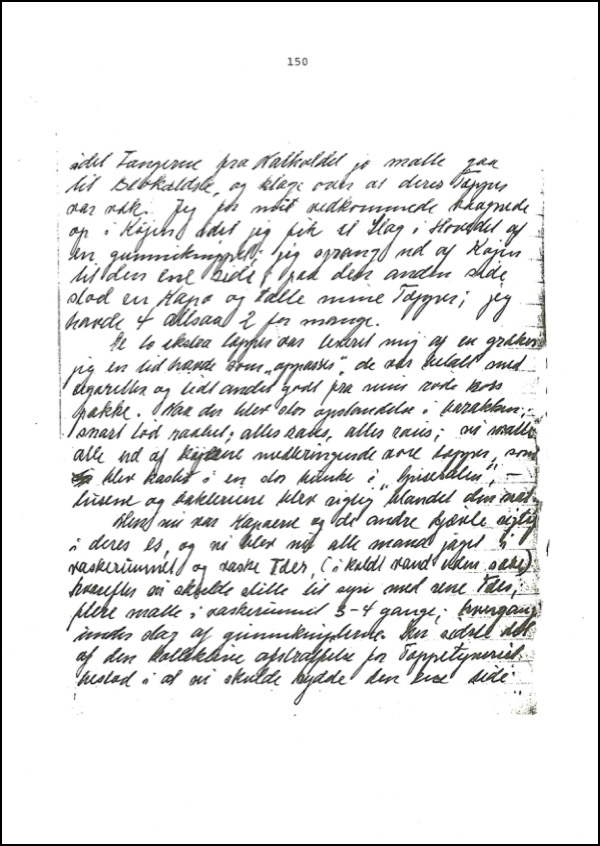 150
idet Fangerne fra Natholdet jo maatte gaa
til Blokældste, og klage over at deres Tæpper
var væk. Jeg for mit vedkommende vaagnede
op i Køjen idet jeg fik et Slag i Hovedet af
en gummiknippel; jeg sprang ud af Køjen
til den ene side, paa den anden side
stod en Kapo og talte mine Tæpper; jeg
havde 4 altsaa 2 for mange.
De to ekstra tæpper var leveret mig af en græker
jeg en tid havde som "oppasser", de var betalt med
cigaretter og lidt andet godt fra min røde kors
pakke. Naa der blev stor opstandelse i barakken,
snart lød raabet; alles raus, alles raus; vi maatte
alle ud af køjerne medbringende vore tæpper, som
blev kastet i en stor bunke i "Spisesalen", —
lusene og bakterierne blev rigtig blandet den nat.
Men nu var Kapoerne og de andre Bjærle rigtig
i deres es, og vi blev nu alle mand jaget i
vaskerummet og vaske Fødder, (i koldt vand uden sæbe)
hvorefter vi skulde stille til syn med rene Fødder;
flere maatte i vaskerummet 3-4 gange; hvergang
under slag af gummiknipplerne. Den sidste del
af den kollektive afstraffelse for Tæppetyveriet
bestod i at vi skulde rydde den ene side